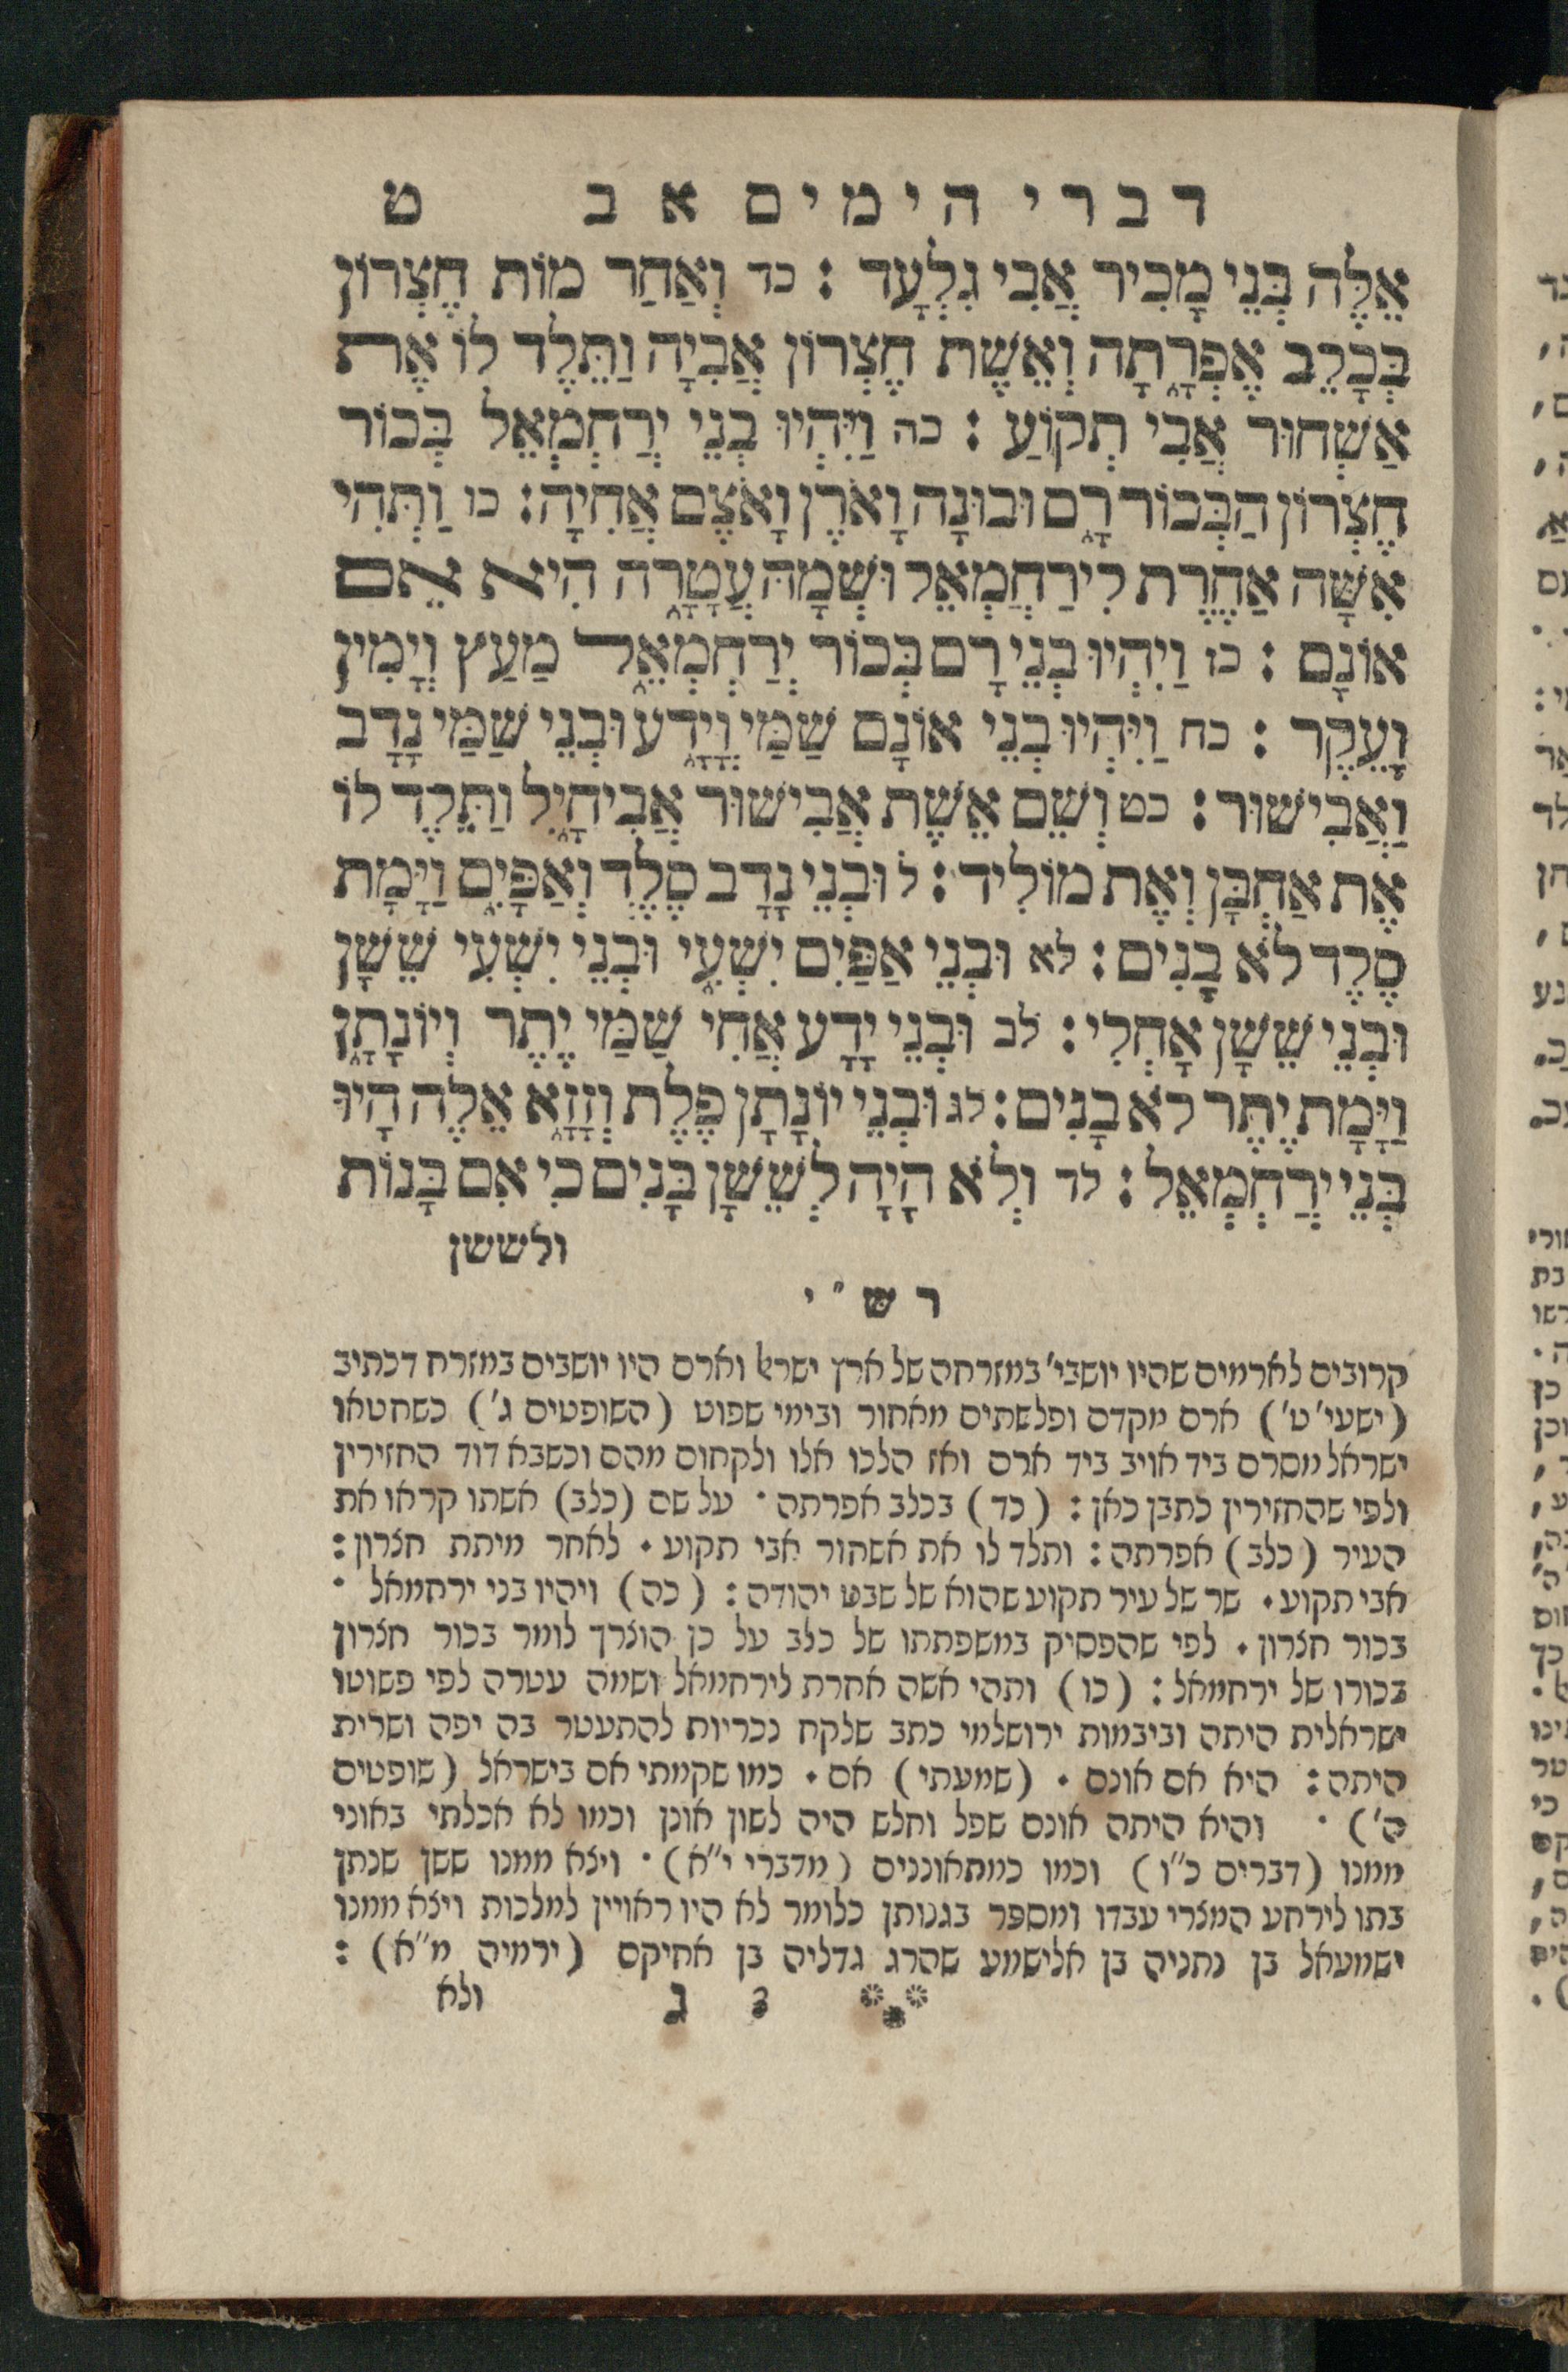 דברי הימים א ב ט
אֵלֶּה בְּנֵי מָכִיר אֲבִי גִלְעָד : כד וְאַחַר מוֹת חֶצְרוֹן
בְּכָלֵב אֶפְרָתָה וְאֵשֶׁת חֶצְרוֹן אֲבִיָה וַתֵּלֶד לוֹ אֶת
אַשְׁחוּר אֲבִי תְקוֹעַ : כה וַיִּהְיוּ בְנֵי יְרַחְמְאֵל בְּכוֹר
חֶצְרוֹן הַבְּכוֹר רָם וּבוּנָה וָאֹרֶן וָאֹצֶם אֲחִיָה : כו וַתְּהִי
אִשָּׁה אַחֶרֶת לִירַחְמְאֵל וּשְׁמָהּ עֲטָרָה הִיא אֵם
אוֹנָם : כז וַיִהְיוּ בְנֵי רָם בְּכוֹר יְרַחְמְאֵל מַעַץ וְיָמִין
וָעֵקֶר : כח וַיִּהְיוּ בְנֵי אוֹנָם שַׁמַּי וְיָדָע וּבְנֵי שַׁמַּי נָדָב
וַאֲבִישׁוּר : כט וְשֵׁם אֵשֶׁת אֲבִישׁוּר אֲבִיחָיִל וַתֵּלֶד לוֹ
אֶת אַחְבָּן וְאֶת מוֹלִיד : ל וּבְנֵי נָדָב סֶלֶד וְאַפָּיִם וַיָּמָת
סֶלֶד לֹא בָנִים : לא וּבְנֵי אַפַּיִם יִשְׁעִי וּבְנֵי יִשְׁעִי שֵׁשָׁן
וּבְנֵי שֵׁשָׁן אָחְלִי : לב וּבְנֵי יָדָע אֲחִי שַׁמַּי יֶתֶר וְיוֹנָתָן
וַיָּמָת יֶתֶר לֹא בָנִים : לג וּבְנֵי יוֹנָתָן פֶּלֶת וְזָזָא אֵלֶּה הָיוּ
בְּנֵי יְרַחְמְאֵל : לד וְלֹא הָיָה לְשֵׁשָׁן בָּנִים כִּי אִם בָּנוֹת
ולששן
רש"י
קרובים לארמים שהיו יושבי' במזרחה של ארץ ישראל וארם היו יושבים במזרח דכתיב
(ישעי' ט') ארם מקדם ופלשתים מאחור ובימי שפוט (השופטים ג') כשחטאו
ישראל מסרם ביד אויב ביד ארם ואז הלכו אלו ולקחום מהם וכשבא דוד החזירין
ולפי שהחזירין כתבן כאן : (כד) בכלב אפרתה · על שם (כלב) אשתו קראו את
העיר (כלב) אפרתה : ותלד לו את אשחור אבי תקוע · לאחר מיתת חצרון :
אבי תקוע · שר של עיר תקוע שהוא של שבט יהודה : (כה) ויהיו בני ירחמאל ·
בכור חצרון · לפי שהפסיק במשפחתו של כלב על כן הוצרך לומר בכור חצרון
בכורו של ירחמאל : (כו) ותהי אשה אחרת לירחמאל ושמה עטרה לפי פשוטו
ישראלית היתה וביבמות ירושלמי כתב שלקח נכריות להתעטר בה יפה ושרית
היתה : היא אם אונם · (שמעתי) אם · כמו שקמתי אם בישראל (שופטים
ה') · והיא היתה אונם שפל וחלש היה לשון אונן וכמו לא אכלתי באוני
ממנו (דברים כ"ו) וכמו כמתאוננים (מדברי י"א) · ויצא ממנו ששן שנתן
בתו לירחע המצרי עבדו ומספר בגנותן כלומר לא היו ראויין למלכות ויצא ממנו
ישמעאל בן נתניה בן אלישמע שהרג גדליה בן אחיקם (ירמיה מ"א) :
ג 3 ולא